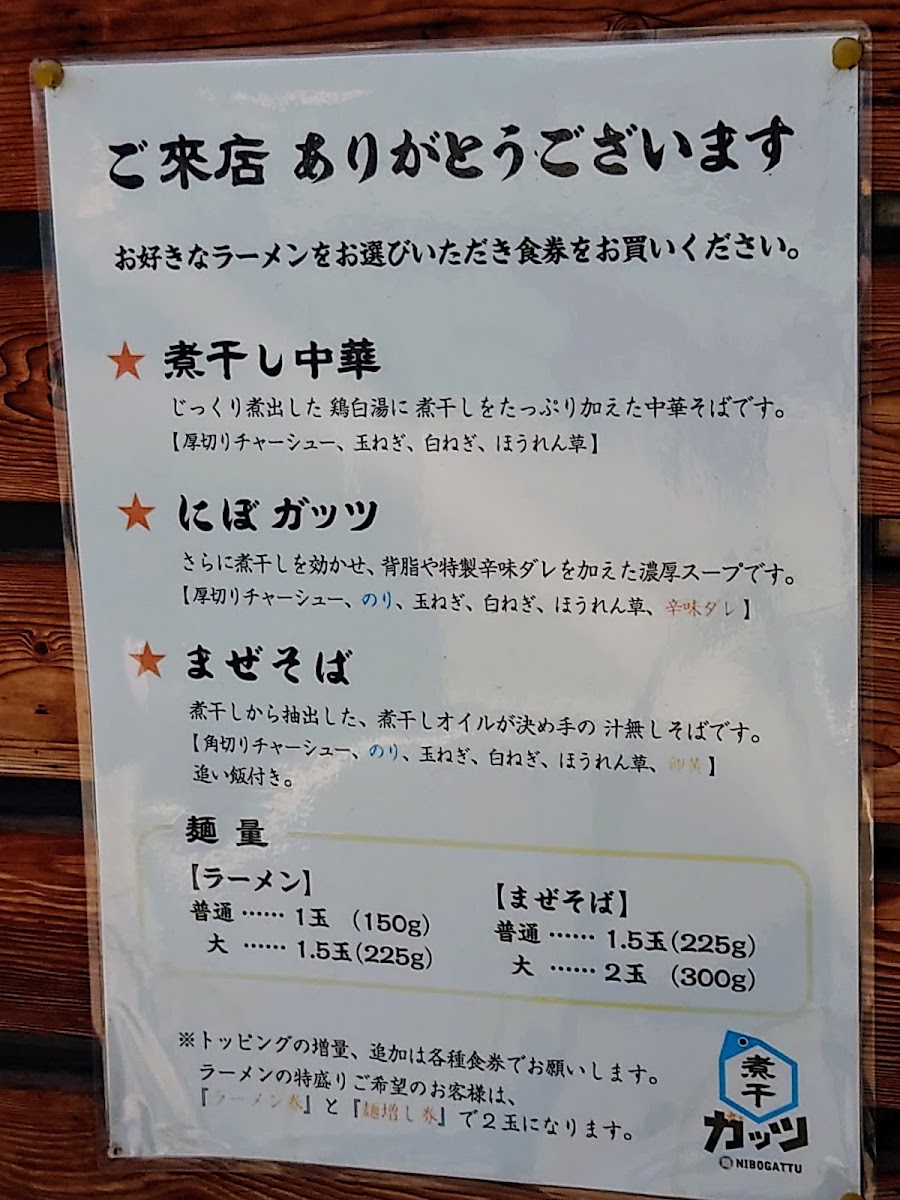 ご來店 ありがとうございます
お好きなラーメンをお選びいただき食券をお買いください。
★ 煮干し中華
じっくり煮出した 鶏白湯に 煮干しをたっぷり加えた中華そばです。
【厚切りチャーシュー、玉ねぎ、白ねぎ、ほうれん草】
★ にぼガッツ
さらに煮干しを効かせ、背脂や特製辛味ダレを加えた濃厚スープです。
【厚切りチャーシュー、のり、玉ねぎ、白ねぎ、ほうれん草、辛味ダレ】
★ まぜそば
煮干しから抽出した、煮干しオイルが決め手の 汁無しそばです。
【角切りチャーシュー、のり、玉ねぎ、白ねぎ、ほうれん草、卵黄】
追い飯付き。
麺 量
【ラーメン】
普通 …… 1玉 (150g)
大 …… 1.5玉(225g)
【まぜそば】
普通 …… 1.5玉(225g)
大 …… 2玉 (300g)
※トッピングの増量、追加は各種食券でお願いします。
ラーメンの特盛りご希望のお客様は、
『ラーメン券』と『麺増し券』で2玉になります。
煮干
ガッツ
NIBOGATTU